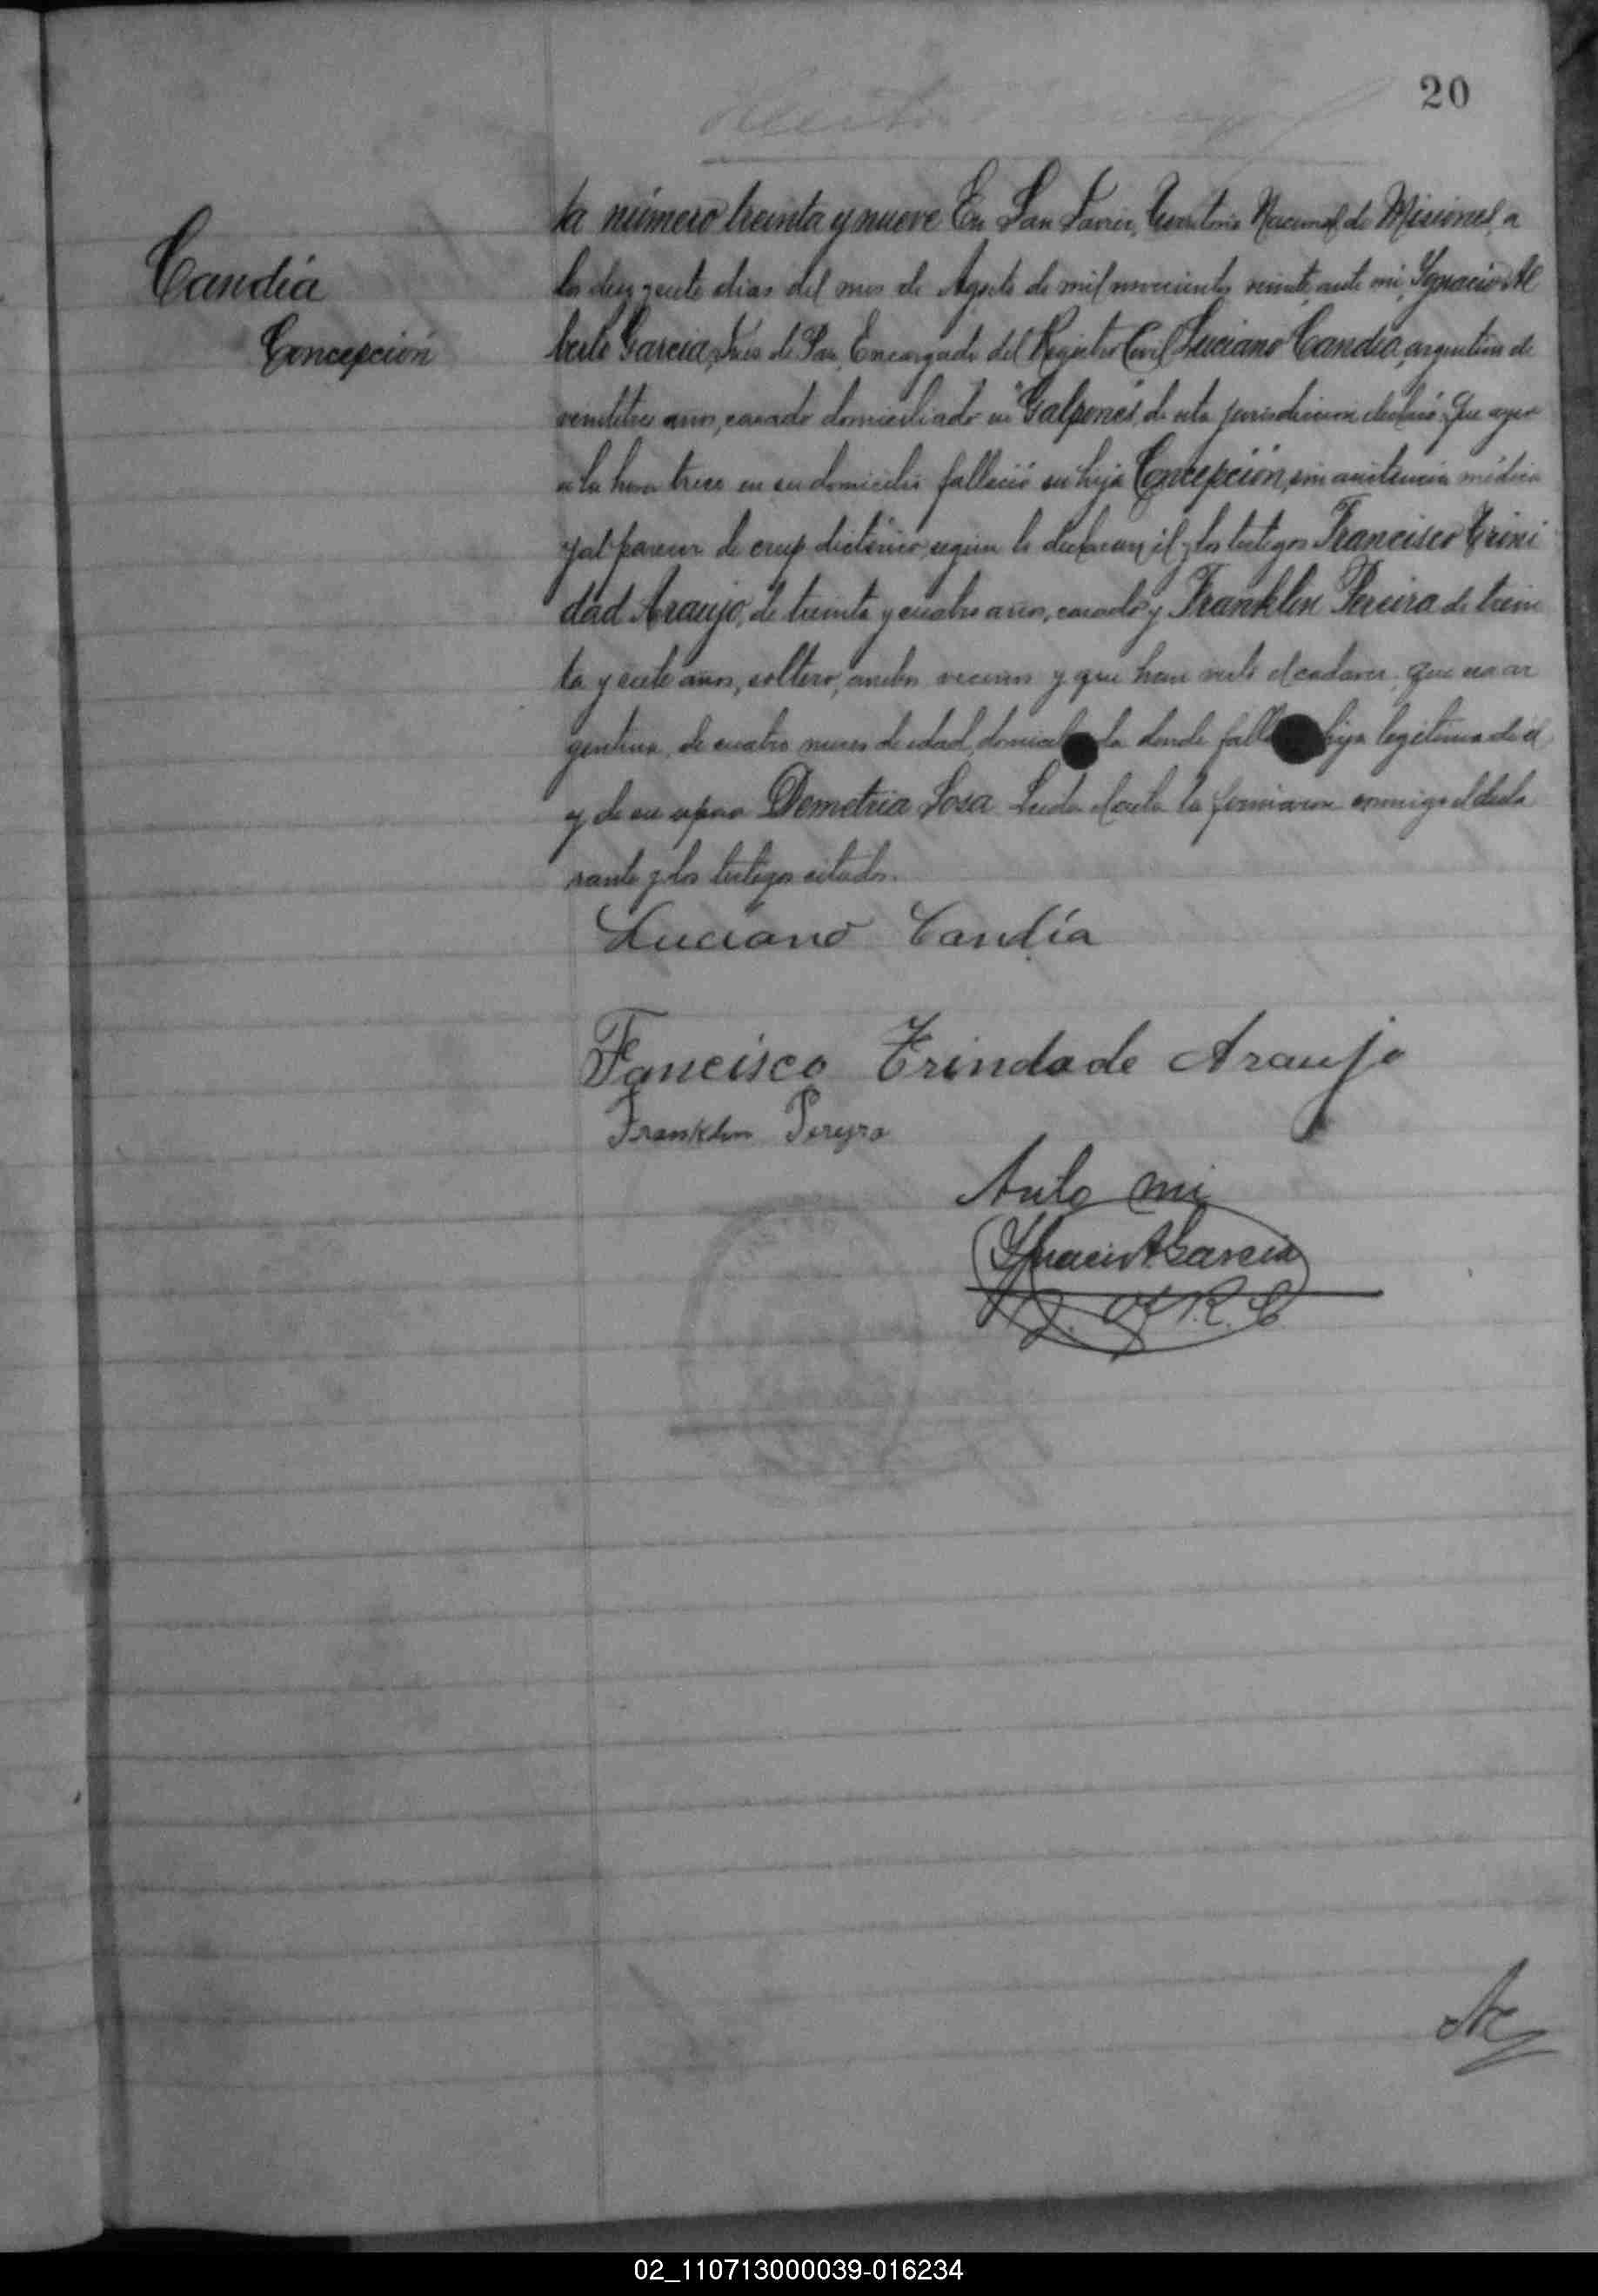 20
Candia
Concepción
ta número treinta y nueve En San Javier, Territorio Nacional de Misiones, a
los diez y siete dias del mes de Agosto de mil novecientos veinte, ante mi, Ygnacio Al
berto Garcia, Juez de Paz, Encargado del Registro Civil Luciano Candia, argentino de
veintitres años, casado domiciliado en "Galpones", de esta jurisdiccion declaró: Que ayer
a la hora trece en su domicilio falleció su hija Concepción, sin asistencia médica
y al parecer de crup, según lo declaran, él y los testigos Francisco Trini
dad Araujo, de treinta y cuatro años, casado y Franklin Pereira de trein
ta y siete años, soltero, ambos vecinos y que han visto el cadaver, que era ar
gentina, de cuatro meses de edad, donde hija legítima de él
y de su esposa Demetria Sosa. Leida el acta la firmaron conmigo el decla
rante y los testigos citados.
Luciano Candía
Fancisco Trindade Araujo
Franklin Pereyra
Ante mi
Ygnacio A Garcia
J. R. C.
02_110713000039-016234